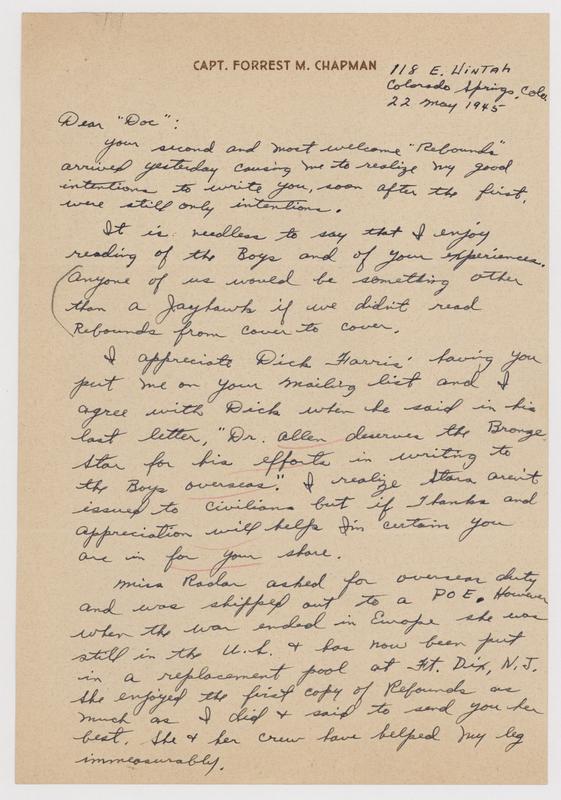 CAPT. FORREST M. CHAPMAN
118 E. Uintah
Colorado Springs, Colo
22 May 1945
Dear "Doc":
Your second and most welcome "Rebounds"
arrived yesterday causing me to realize my good
intentions to write you, soon after the first,
were still only intentions.
It is needless to say that I enjoy
reading of the Boys and of your experiences.
Anyone of us would be something other
than a Jayhawk if we didn't read
Rebounds from cover to cover.
I appreciate Dick Harris' having you
put me on your mailing list and I
agree with Dick when he said in his
last letter, "Dr. Allen deserves the Bronze
Star for his efforts in writing to
the Boys overseas." I realize Stars aren't
issued to Civilians but if Thanks and
appreciation will help I'm certain you
are in for your share.
Miss Radar asked for overseas duty
and was shipped out to a POE. However
when the war ended in Europe she was
still in the U.S. & has now been put
in a replacement pool at Ft. Dix, N.J.
She enjoyed the first copy of Rebounds as
much as I did & said to send you her
best. She & her crew have helped my leg
immeasurably.